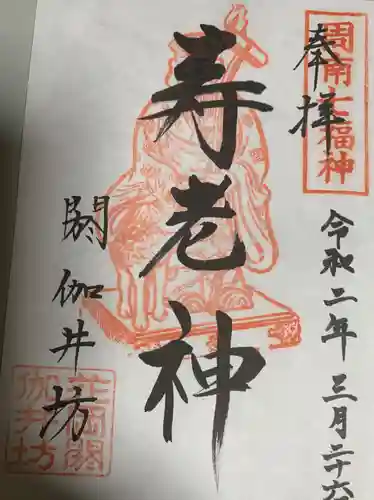 奉拝
周南七福神
令和二年三月二十六
寿老神
閼伽井坊
花岡閼
伽井坊